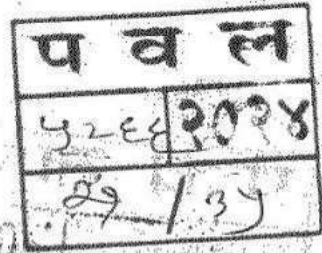 प व ल
५२६६ २०२४
२१ / ३५